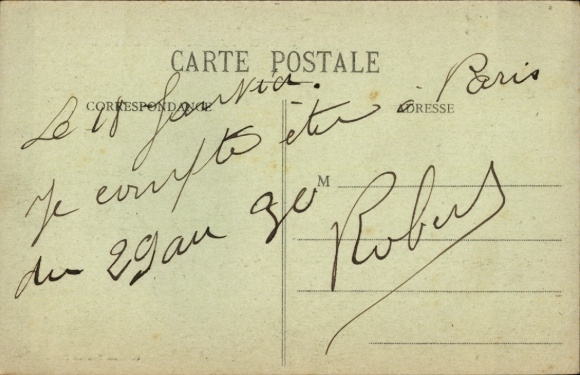 CARTE POSTALE
CORRESPONDANCE
ADRESSE
Le 18 Janvier.
Je compte être à Paris
du 29 au 30
M
Robert